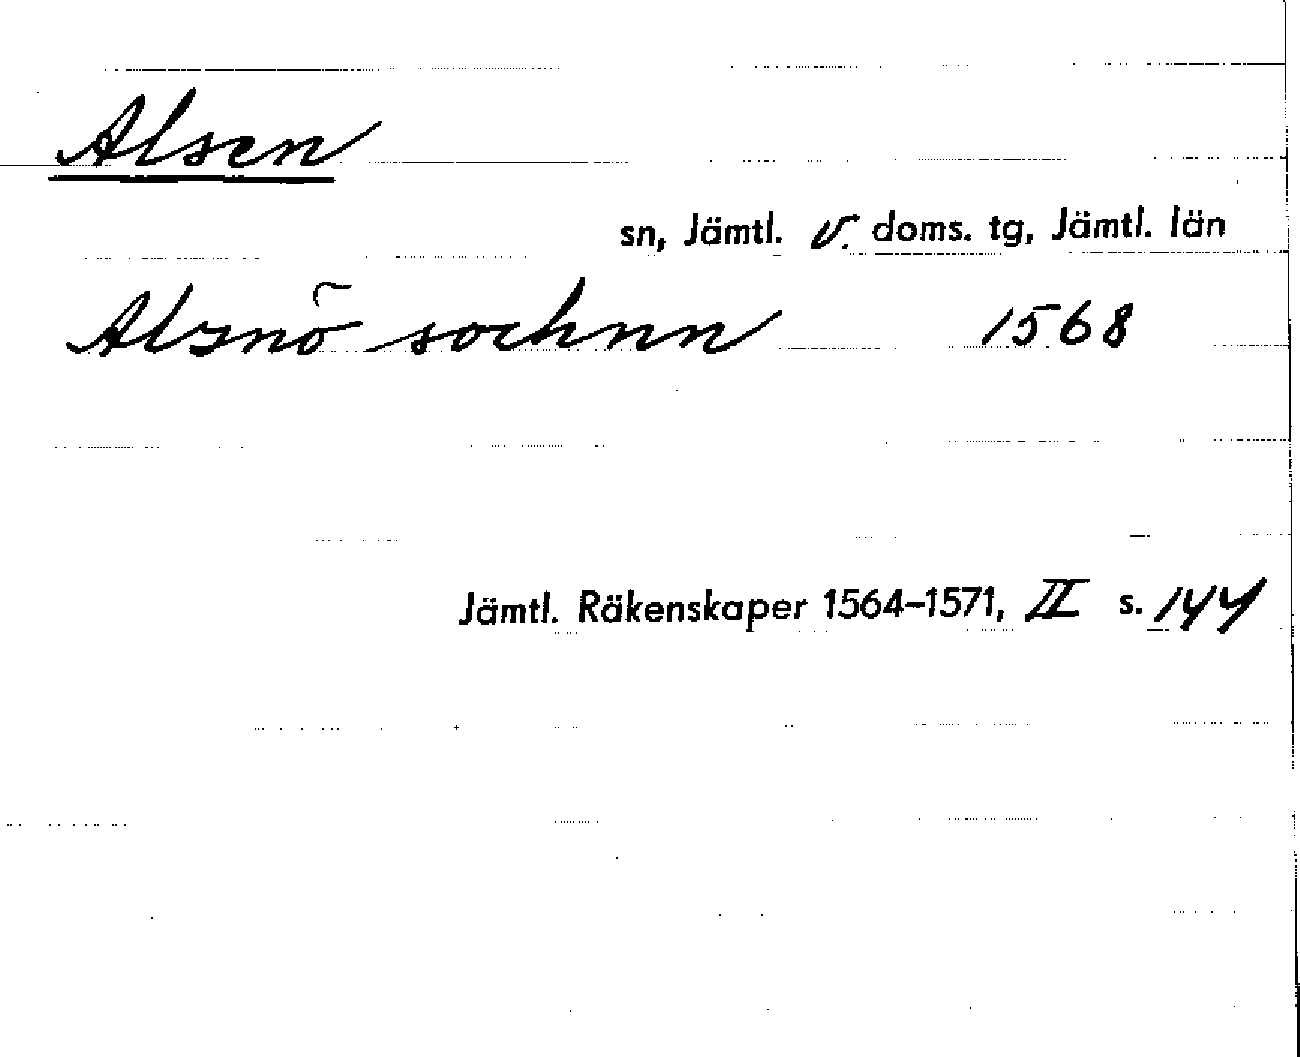 Alsen
sn, Jämtl. v. doms. tg, Jämtl. län
Alsnö sochnn 1568
Jämtl. Räkenskaper 1564–1571, II s. 144